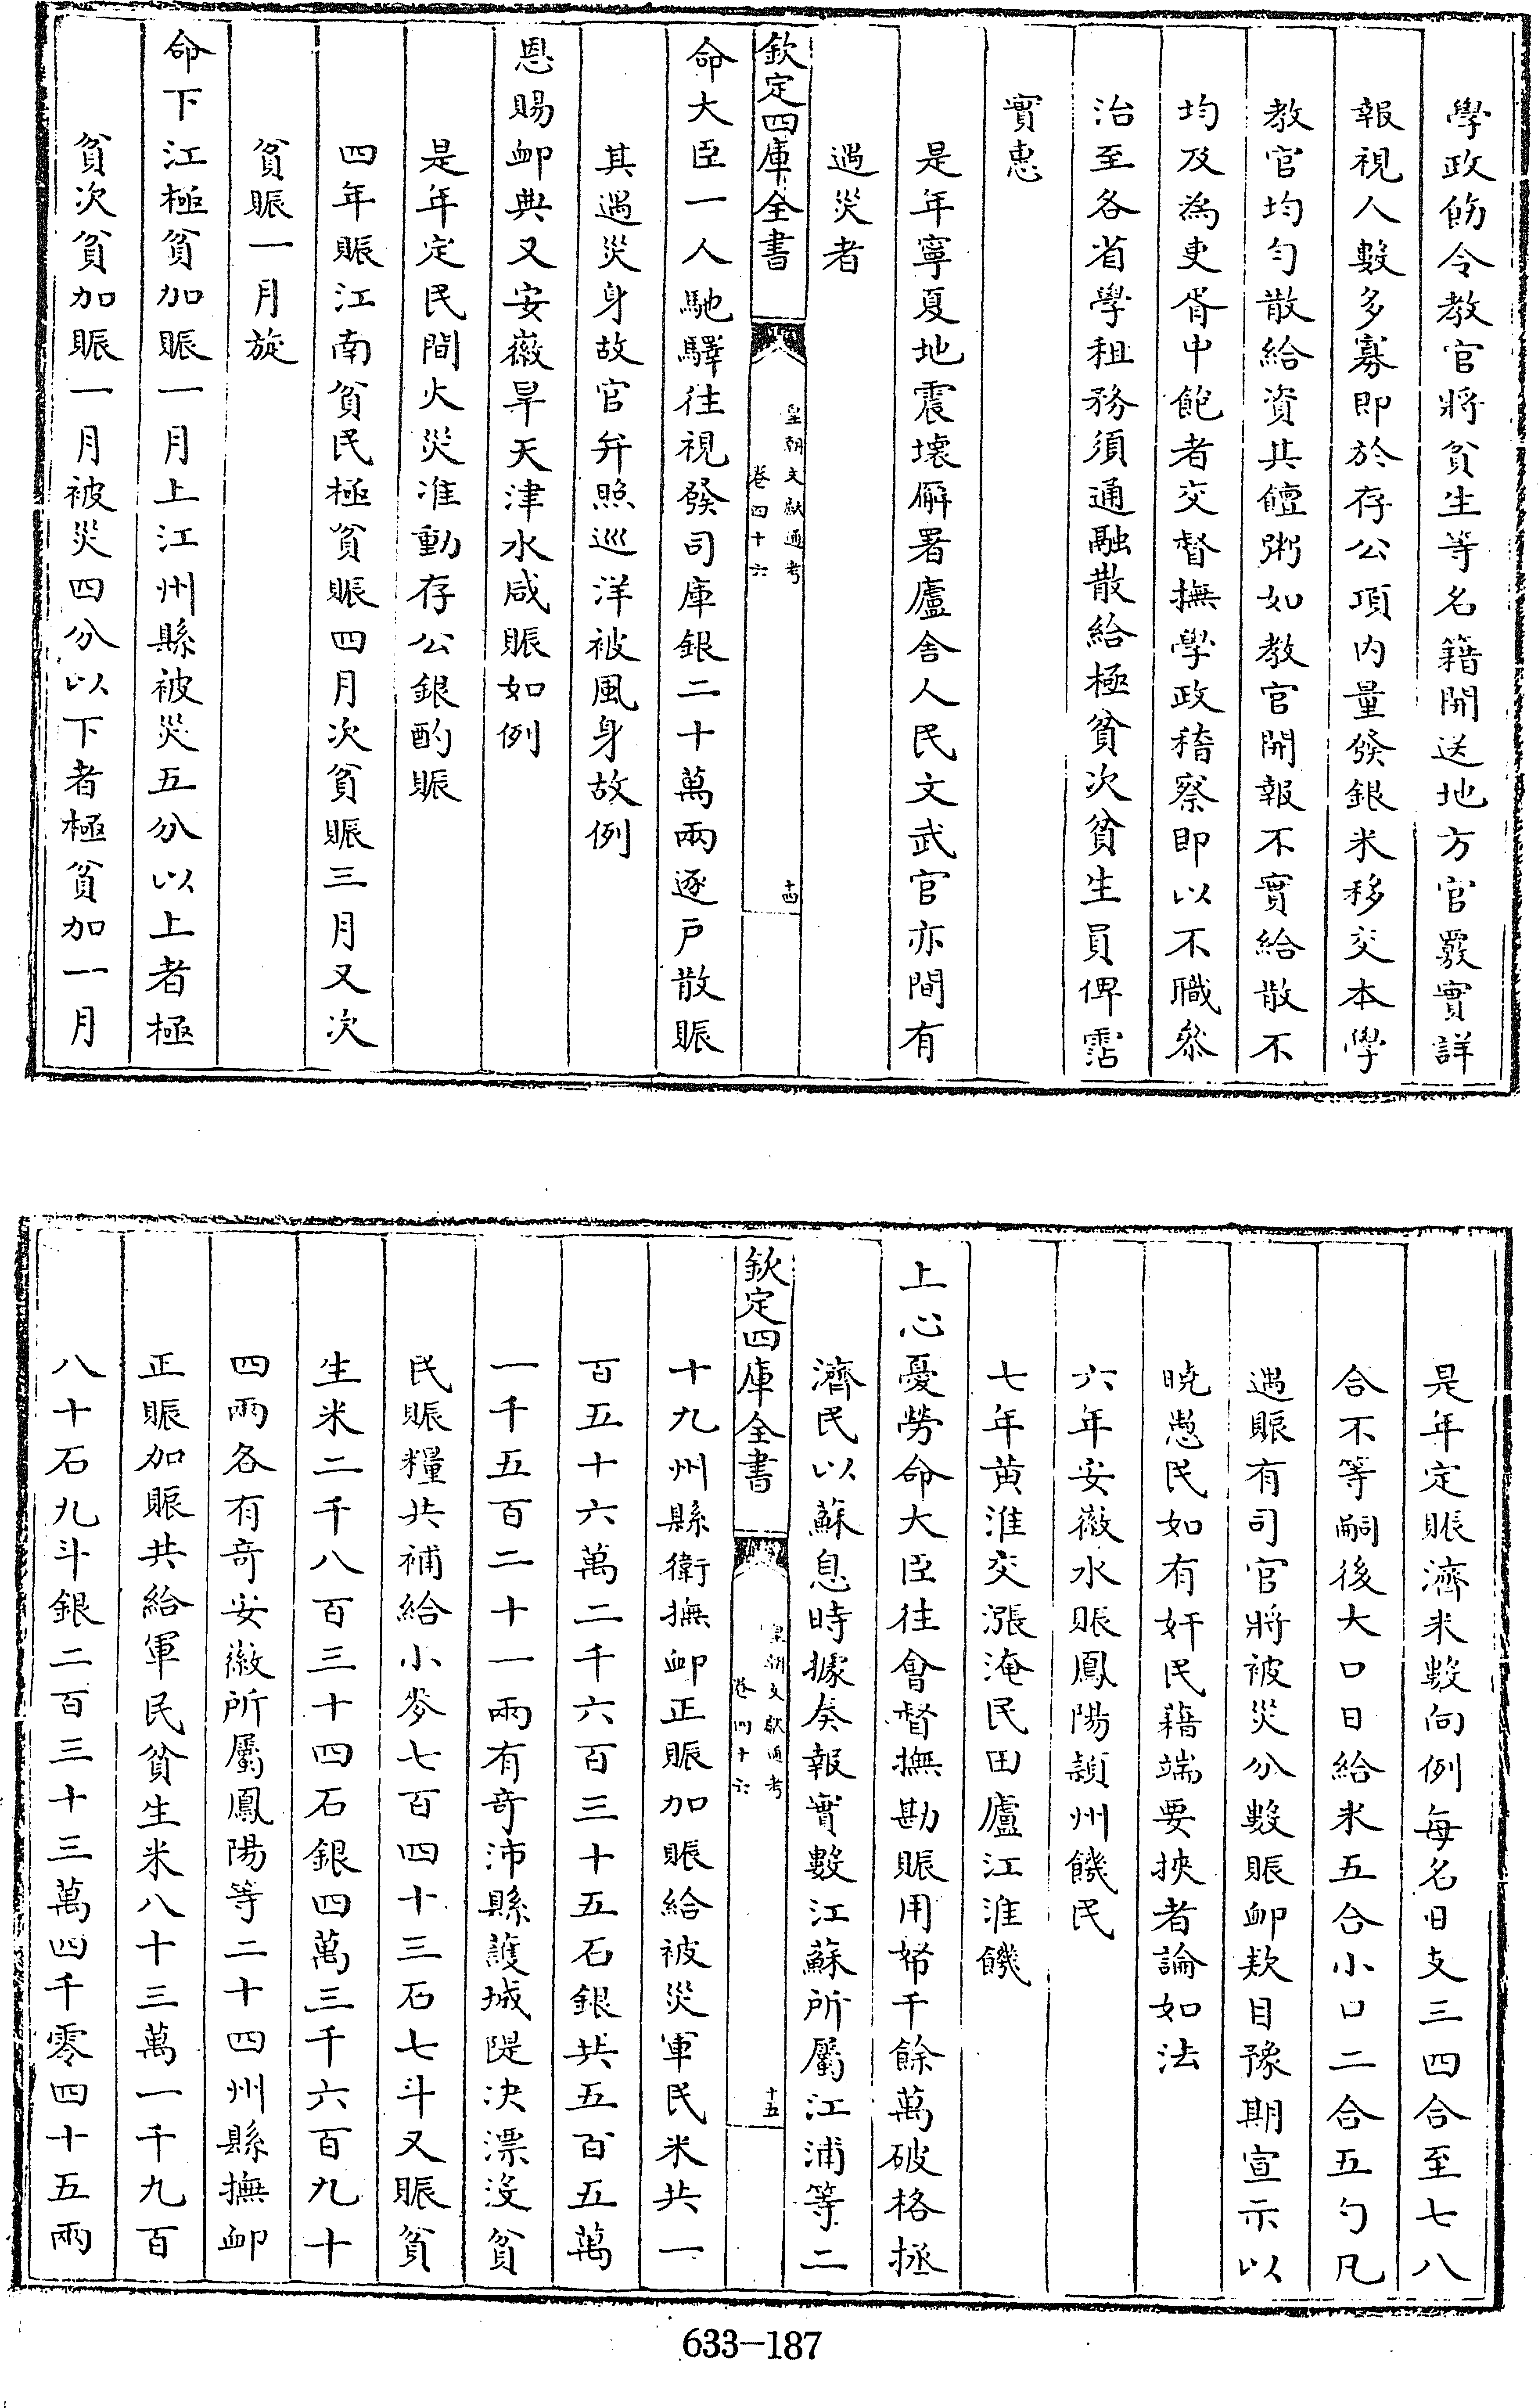 學政飭令教官將貧生等名籍開送地方官覈實詳
報視人數多寡即於存公項内量發銀米移交本學
教官均勻散給資其饘粥如教官開報不實給散不
均及為吏胥中飽者交督撫學政稽察即以不職叅
治至各省學租務須通融散給極貧次貧生員俾霑
實惠
是年寧夏地震壞廨署廬舍人民文武官亦間有
遇災者
欽定四庫全書
皇朝文獻通考
卷四十六
十四
命大臣一人馳驛往視發司庫銀二十萬兩逐戸散賑
其遇災身故官弁照巡洋被風身故例
恩賜卹典又安徽旱天津水咸賑如例
是年定民間火災准動存公銀酌賑
四年賑江南貧民極貧賑四月次貧賑三月又次
貧賑一月旋
命下江極貧加賑一月上江州縣被災五分以上者極
貧次貧加賑一月被災四分以下者極貧加一月
是年定賑濟米數向例每名日支三四合至七八
合不等嗣後大口日給米五合小口二合五勺凡
遇賑有司官將被災分數賑卹欵目豫期宣示以
曉愚民如有奸民藉端要挾者論如法
六年安徽水賑鳳陽潁州饑民
七年黄淮交漲淹民田廬江淮饑
上心憂勞命大臣往會督撫勘賑用帑千餘萬破格拯
濟民以蘇息時據奏報實數江蘇所屬江浦等二
欽定四庫全書
皇朝文獻通考
卷四十六
十五
十九州縣衛撫卹正賑加賑給被災軍民米共一
百五十六萬二千六百三十五石銀共五百五萬
一千五百二十一兩有竒沛縣護城隄决漂沒貧
民賑糧共補給小麥七百四十三石七斗又賑貧
生米二千八百三十四石銀四萬三千六百九十
四兩各有竒安徽所屬鳳陽等二十四州縣撫卹
正賑加賑共給軍民貧生米八十三萬一千九百
八十石九斗銀二百三十三萬四千零四十五兩
633-187